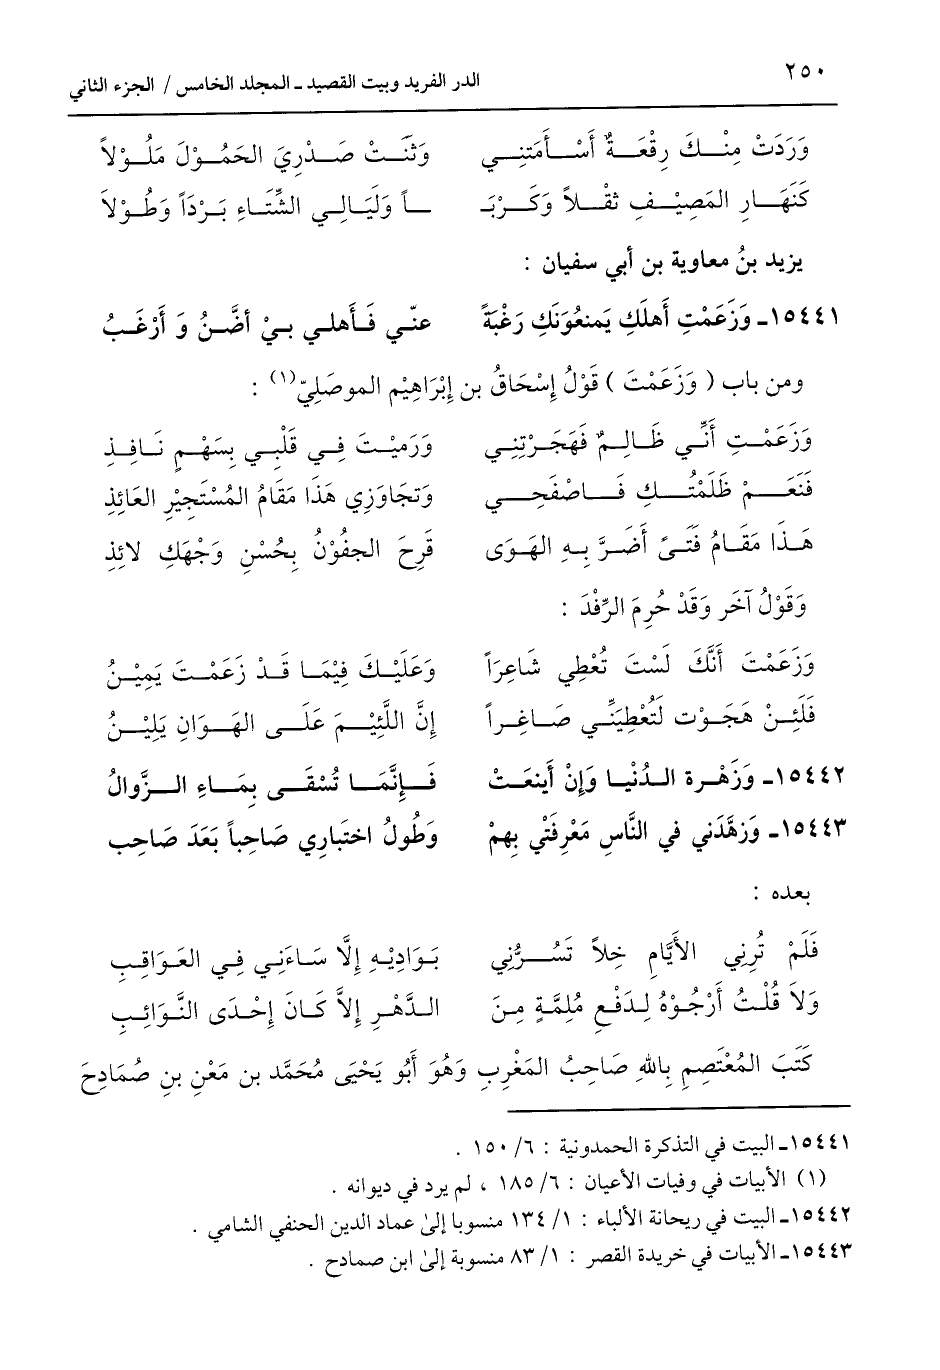 ٢٥٠ الدر الفريد وبيت القصيد ـ المجلد الخامس / الجزء الثاني
وَرَدَتْ مِنْـــكَ رِقْعَـــةٌ أَسْـــأَمَتنِـــي وَثَنَـــتْ صَـــدْرِيَ الحَمُـــوْلَ مَلُـــوْلاً
كَنَهَـــارِ المَصِيْـــفِ ثقْـــلاً وَكَـــرْبَـ ـــاً وَلَيَالِـــي الشِّتَـــاءِ بَـــرْدَاً وَطُـــوْلاَ
يزيد بنُ معاوية بن أبي سفيان :
١٥٤٤١ـ وَزَعَمْتِ أهلَكِ يَمنعُونَكِ رَغْبَةً عنّـي فَـأهلـي بـيْ أضَّـنُ وَ أَرْغَـبُ
ومن باب ( وَزَعَمْتَ ) قَوْلُ إِسْحَاقُ بن إِبْرَاهِيْم الموصَلِيّ(١) :
وَزَعَمْـتِ أَنِّـي ظَالِـمٌ فَهَجَرْتِنِـي وَرَمِيْـتَ فِـي قَلْبِـي بِسَهْـمٍ نَـافِـذِ
فَنَعَـــمْ ظَلَمْتُـــكِ فَـــاصْفَحِـــي وَتَجَاوَزِي هَذَا مَقَامُ المُسْتَجِيْرِ العَائِذِ
هَـــذَا مَقَـــامُ فَتَـىً أَضَـــرَّ بِـهِ الهَـوَى قَرِحَ الجفُوْنُ بِحُسْنِ وَجْهَكِ لائِذِ
وَقَوْلُ آخَر وَقَدْ حُرِمَ الرِّفْدَ :
وَزَعَمْتَ أَنَّكَ لَسْتَ تُعْطِي شَاعِرَاً وَعَلَيْـكَ فِيْمَـا قَـدْ زَعَمْـتَ يَمِيْـنُ
فَلَئِـنْ هَجَـوْت لَتُعْطِيَنِّـي صَـاغِـراً إِنَّ اللَّئِيْـمَ عَلَـى الهَـوَانِ يَلِيْـنُ
١٥٤٤٢ـ وَزَهْـرة الـدُنْيـا وَإِنْ أَينَعَـتْ فَـإنَّمَـا تُسْقَـى بِمَـاءِ الـزَّوالُ
١٥٤٤٣ـ وَزهَّدَني في النَّاسِ مَعْرِفَتي بِهِمْ وَطُولُ اختَبارِي صَاحِباً بَعَدَ صَاحِب
بعده :
فَلَمْ تُرِني الأَيَّامِ خِلاً تَسُـــرُّنِي بَـوَادِيْـهِ إِلَّا سَـاءَنِـي فِـي العَـوَاقِـبِ
وَلاَ قُلْتُ أَرْجُـوْهُ لِـدَفْعِ مُلِمَّةٍ مِـنَ الـدَّهْـرِ إِلاَّ كَـانَ إِحْـدَى النَّـوَائِـبِ
كَتَبَ المُعْتَصِمِ بِاللهِ صَاحِبُ المَغْرِبِ وَهُوَ أَبُو يَحْيَى مُحَمَّد بن مَعْنِ بنِ صُمَادِحَ
١٥٤٤١ـ البيت في التذكرة الحمدونية : ٦/ ١٥٠ .
(١) الأبيات في وفيات الأعيان : ٦/ ١٨٥ ، لم يرد في ديوانه .
١٥٤٤٢ـ البيت في ريحانة الألباء : ١/ ١٣٤ منسوبا إلىٰ عماد الدين الحنفي الشامي .
١٥٤٤٣ـ الأبيات في خريدة القصر : ١/ ٨٣ منسوبة إلىٰ ابن صمادح .